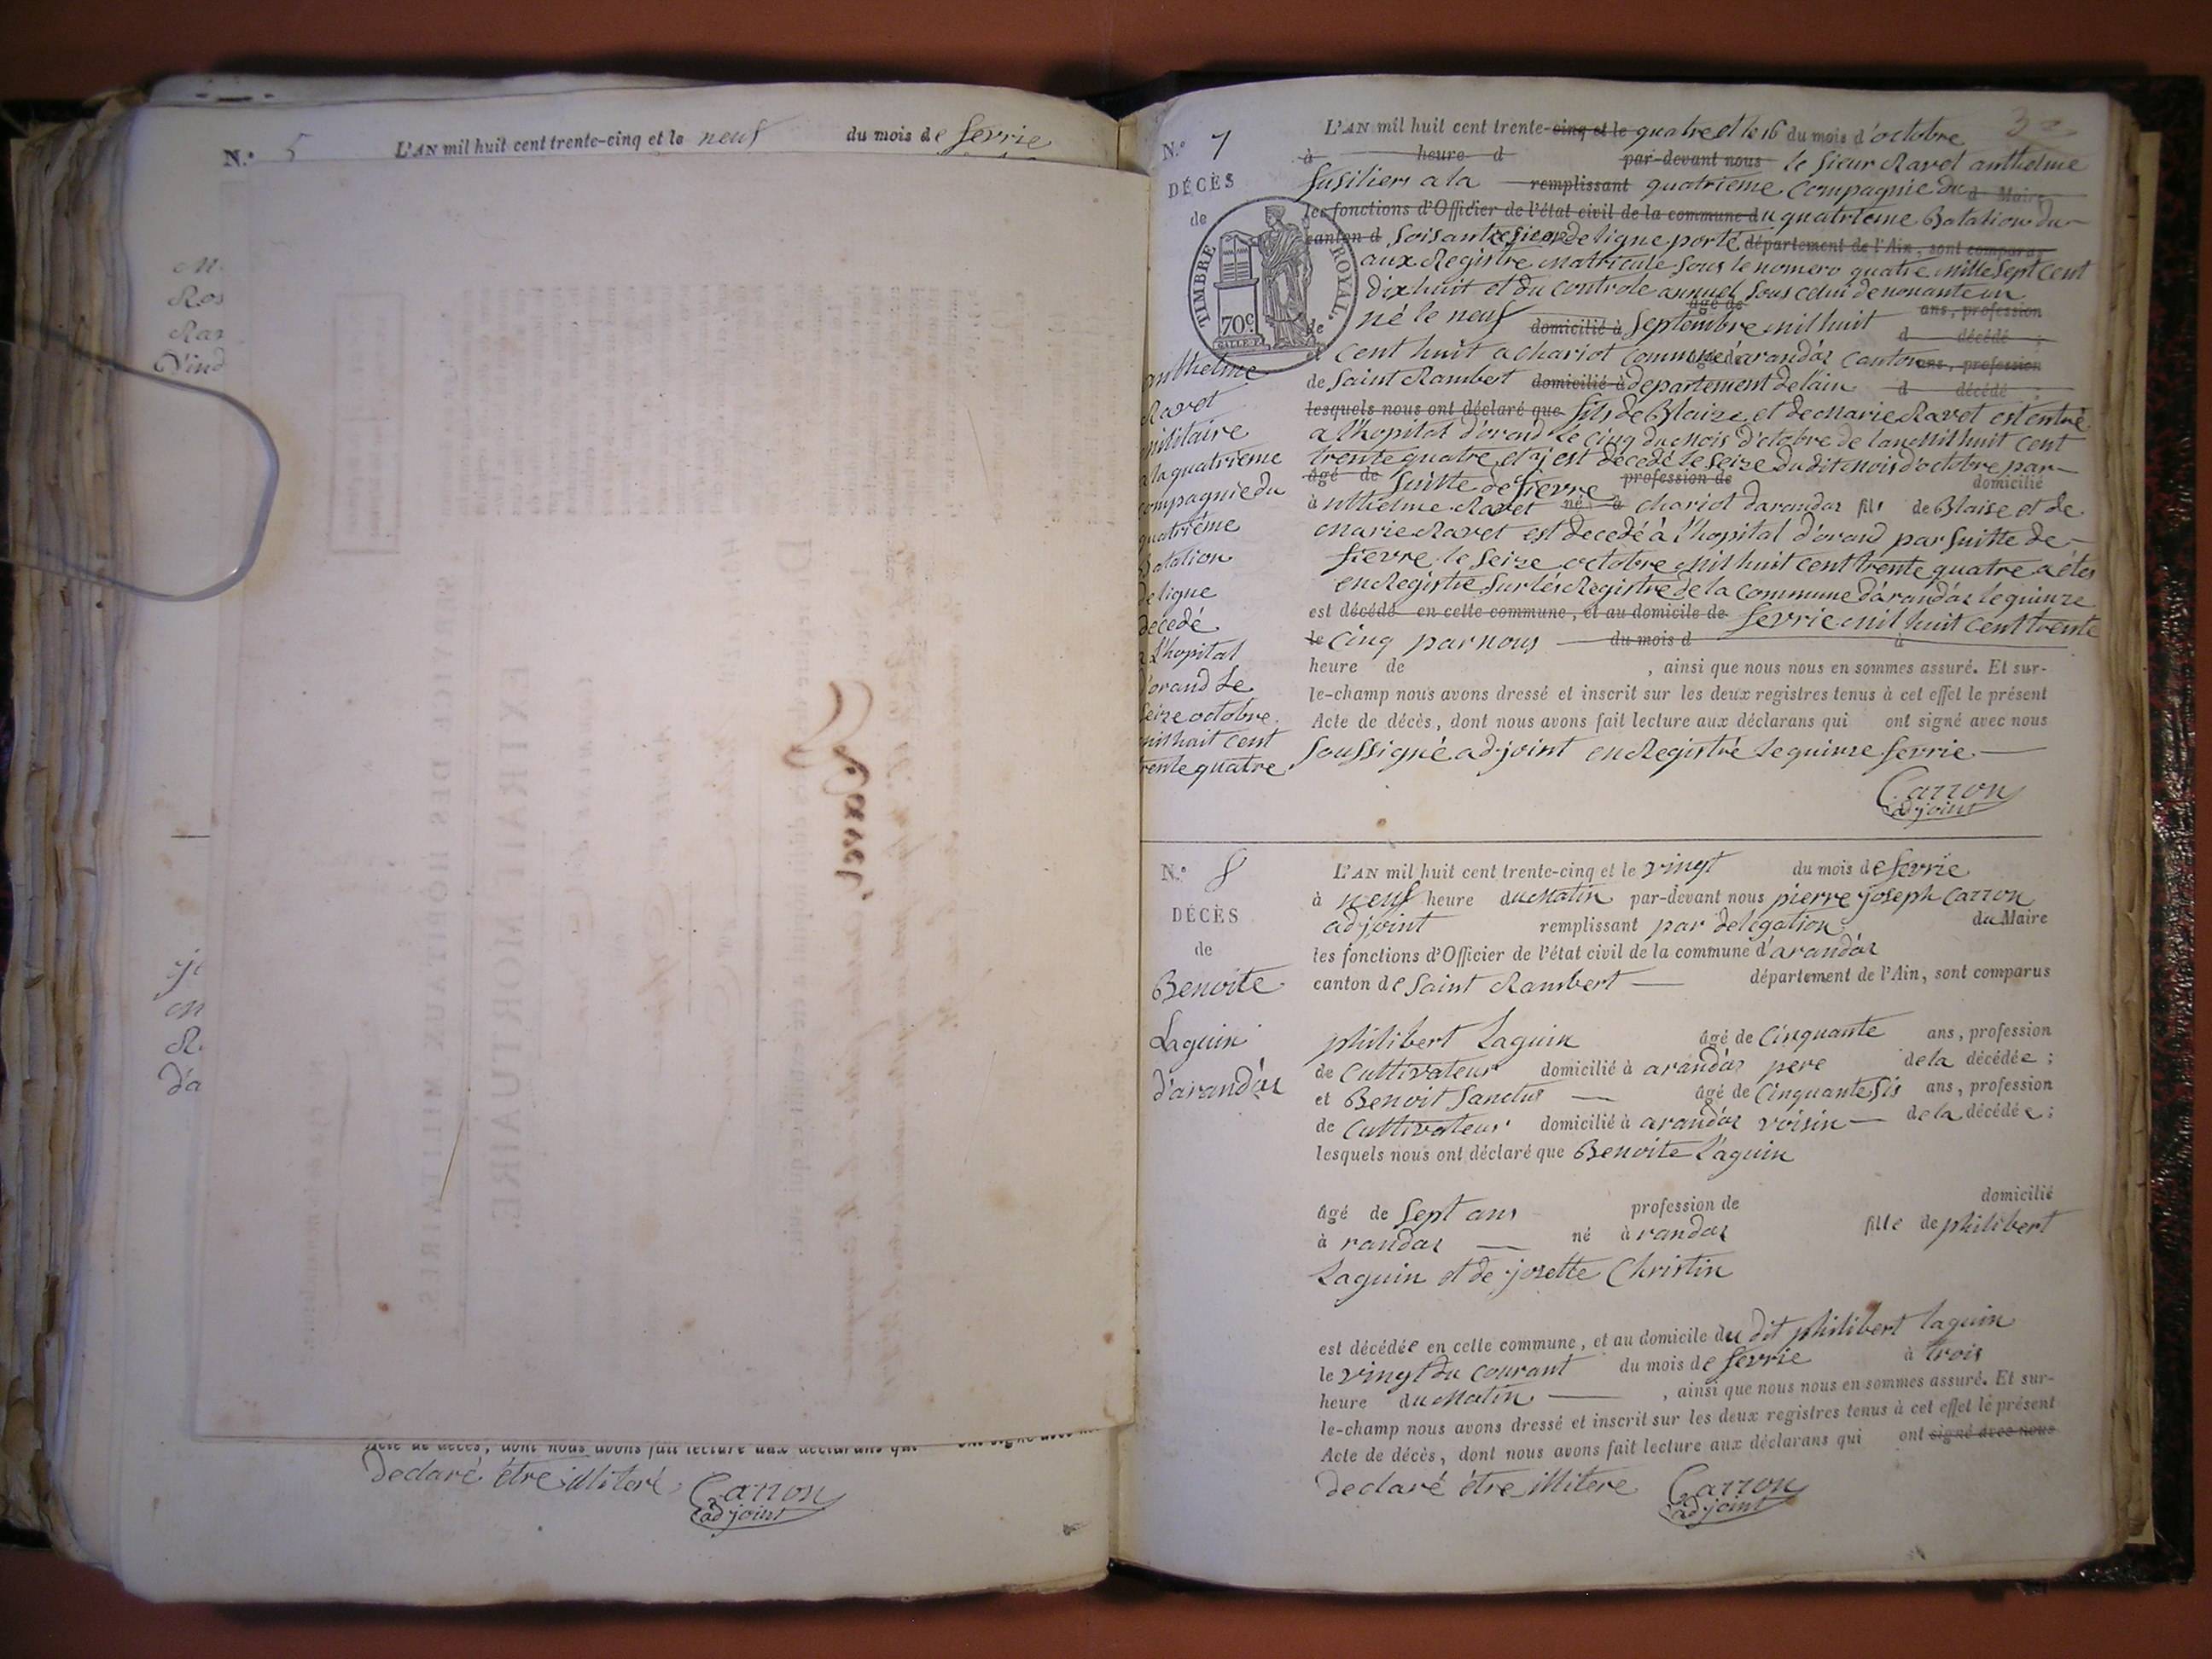 N.° 5 L'AN mil huit cent trente-cinq et le neuf du mois de fevrie
Ros
Rav
Vind
Ravet
EXTRAIT MORTUAIRE.
SERVICE DES HÔPITAUX MILITAIRES
d'a
Acte de décès, dont nous avons fait lecture aux déclarans qui
declaré être illiteré Carron
adjoint
N.° 7 L'AN mil huit cent trente-cinq et le quatre et le 16 du mois d'octobre
à heure d par-devant nous le sieur Ravet anthelme
DÉCÈS fusilier a la remplissant quatrieme Compagnie du d Maire
de les fonctions d'Officier de l'état civil de la commune du quatrieme Batalion du
canton d Soisante de ligne porté département de l'Ain, sont comparus
aux Registre matricule sous le nomero quatre mille sept cent
dixhuit et du controle annuel sous celui de nonante un
TIMBRE ROYAL.
70c
âgé de ans, profession
de né le neuf domicilié à Septembre mil huit d décédé ;
et Cent huit a chariot Commune d'arandas Canton ans, profession
de Saint Rambert domicilié à departement de lain d décédé ;
lesquels nous ont déclaré que fils de Blaize et de marie Ravet est entré
a l'hopital d'orand le cinq du mois d'octobre de lan mil huit cent
trente quatre et y est décedé le seize du dit mois d'octobre par
âgé de suitte de fievre profession de domicilié
à anthelme Ravet né à chariot darandas fils de Blaise et de
marie Ravet est decedé à l'hopital d'orand par suitte de
fievre le seize octobre mil huit cent trente quatre a étés
enRegistré sur lés Registre de la Commune d'arandas le quinze
est décédé en cette commune, et au domicile de fevrie mil huit cent trente
le Cinq par nous du mois d à
heure de , ainsi que nous nous en sommes assuré. Et sur-
le-champ nous avons dressé et inscrit sur les deux registres tenus à cet effet le présent
Acte de décès, dont nous avons fait lecture aux déclarans qui ont signé avec nous
soussigné adjoint enRegistré le quinze fevrie
Carron
adjoint
anthelme
Ravet
militaire
a la quatrieme
compagnie du
quatriéme
Batalion
de ligne
décedé
a l'hopital
d'orand le
seize octobre
mil huit cent
trente quatre
N.° 8 L'AN mil huit cent trente-cinq et le vingt du mois de fevrie
à neuf heure du Matin par-devant nous pierre joseph Carron
DÉCÈS adjoint remplissant par delegation du Maire
de les fonctions d'Officier de l'état civil de la commune d'arandas
Benoite canton de Saint Rambert département de l'Ain, sont comparus
Laguin philibert Laguin âgé de Cinquante ans, profession
de Cultivateur domicilié à arandas pere de la décédée ;
d'arandas et Benoit Sanctus âgé de Cinquante sis ans, profession
de Cultivateur domicilié à arandas voisin de la décédée ;
lesquels nous ont déclaré que Benoite Laguin
âgé de sept ans profession de domicilié
à randas né à randas fille de philibert
Laguin et de josette Christin
est décédée en cette commune, et au domicile du dit philibert laguin
le vingt du courant du mois de fevrie à trois
heure du Matin , ainsi que nous nous en sommes assuré. Et sur-
le-champ nous avons dressé et inscrit sur les deux registres tenus à cet effet le présent
Acte de décès, dont nous avons fait lecture aux déclarans qui ont signé avec nous
declaré être illitere Carron
adjoint